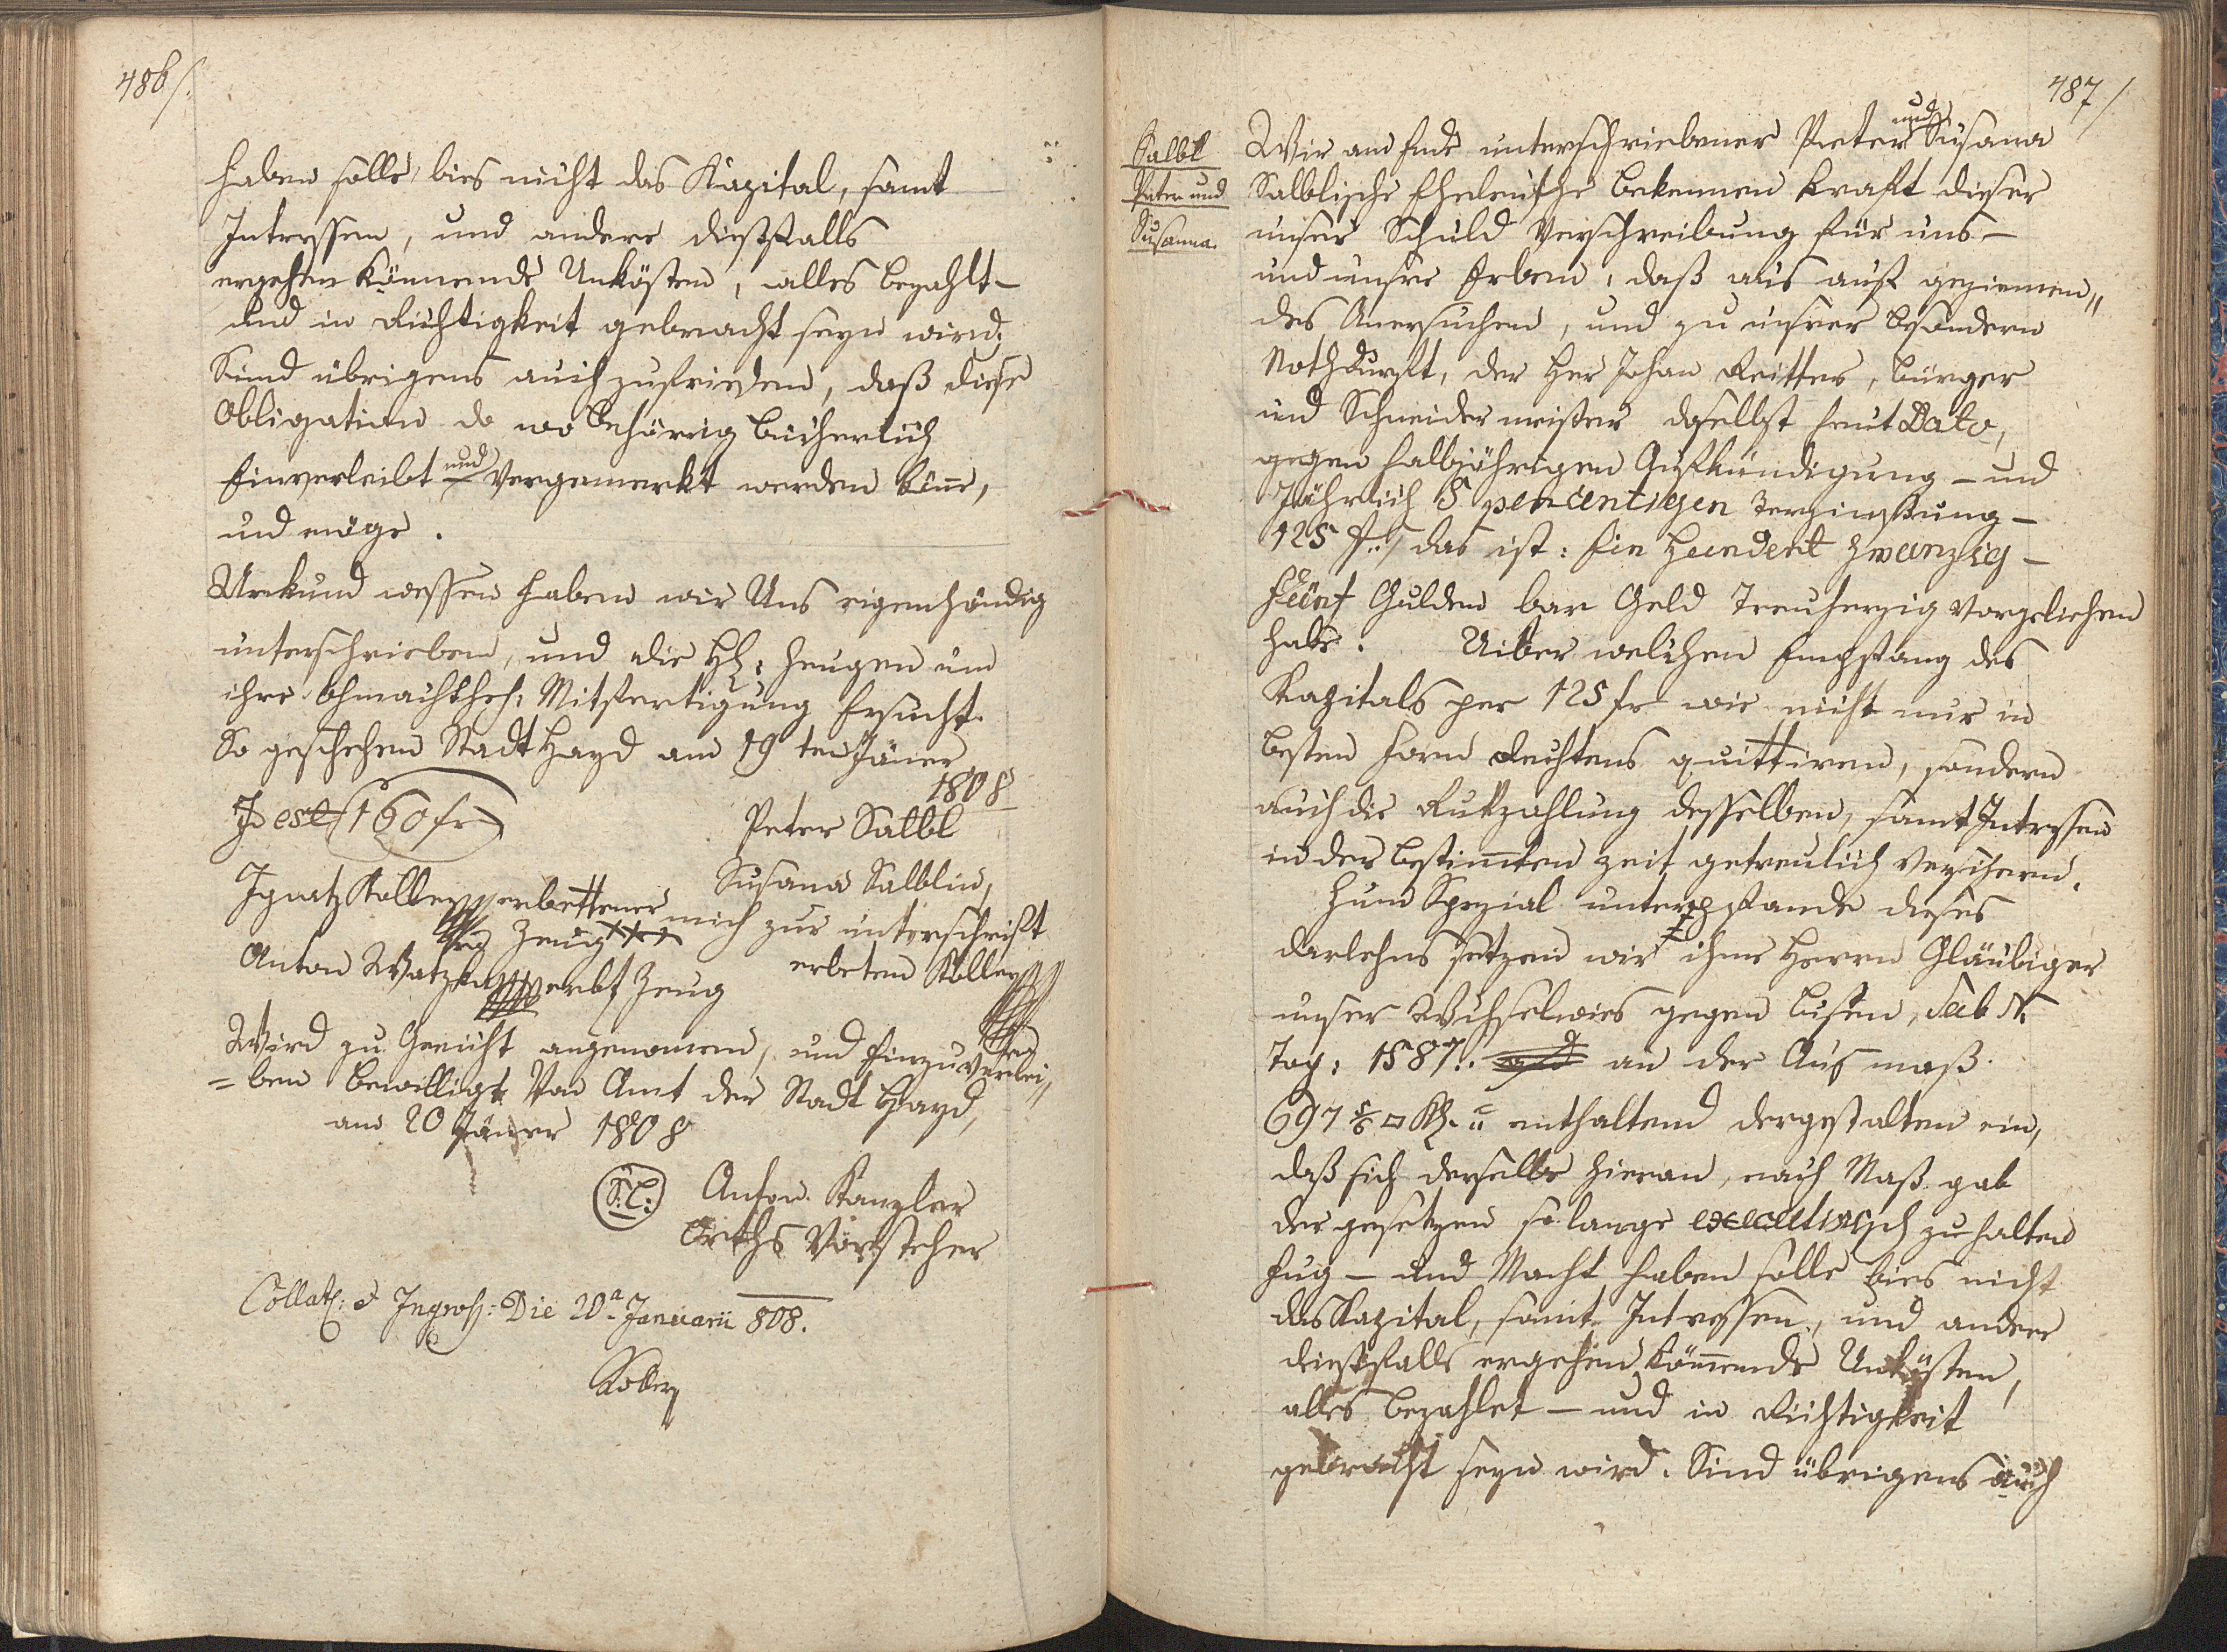 486/.
haben solle, bies nicht das Kapital, samt
Intressen, und andere diesfalls
ergehen könnende Unkösten, alles bezahlt –
und in Richtigkeit gebracht seyn wird;
Sind übrigens auch zufrieden, daß diese
Obligation do wo behörrig bücherlich
Einverleibt – und Vorgemerkt werden könne,
und möge.
Urkund wessen haben wir Uns eigenhändig
unterschrieben, und die HH: Zeugen um
ihre Mitfertigung Ersucht.
So geschehen Stadt Hayd am 19ten Jäner
1808
Id est 160 fr
Peter Salbl
Susana Salblin,
Ignatz Koller erbettener
Zeug
mich zur unterschrift
erbeten Koller
Anton Watzka erbt Zeug
Wird zu Gericht angenomen, und Einzuverlei„
=ben bewilligt Von Amt der Stadt Hayd,
am 20 Jäner 1808
S:L: Anton Kanzler
Orths Vorsteher
Collat: & Ingross: Die 20a Januarii 808.
Koller
487/
Salbl
Peter und
Susanna.
Wir am Ende unterschriebener Peter und Susana
Salblische Eheleuthe bekennen Kraft dieser
unser Schuld Verschreibung für uns –
und unsre Erben, daß uns auf geziemen„
des Anersuchen, und zu unsrer besondern
Nothdurft, der Her Johan Reitter, bürger
und Schneidermeister daselbst heut Dato,
gegen halbjährigen Aufkündigung – und
Jährlich 5 percentigen Verzinsung –
125 f.. das ist: Ein Hundert Zwanzig –
Fünf Gulden bar Geld Treuherzig Vorgeliehen
habe. Uiber welchen Empfang des
Kapitals per 125 fr wir nicht nur in
besten Form Rechtens quittiren, sondern
auch die Rukzahlung desselben, samt Intressen
in der bestimten Zeit getreulich Versichern.
Zum Spezial unterpfande dieses
darlehns setzen wir ihme Herrn Gläubiger
unser Wechselwies gegen Sub N
Top: 1587.. an der Ausmaß
697 □ Kl. enthaltend dergestalten ein,
daß sich derselbe hieran, nach Maß gab
der gesetzen so lange executivisch zu halten
Fug – und Macht haben solle bies nicht
das Kapital, samt Intressen, und andere
diesfalls ergehen könnende Unkösten,
alles bezahlet – und in Richtigkeit
gebracht seyn wird. Sind übrigens auch